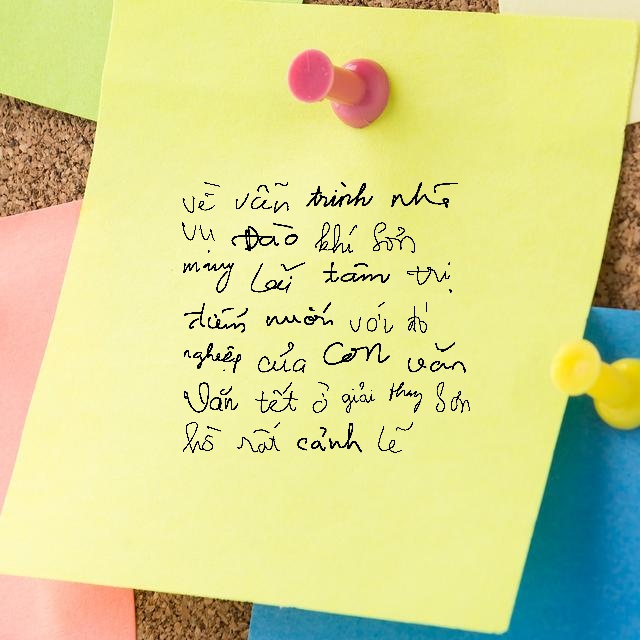 về vẫn trình nhã
vụ Đào khí Sơn
mạng lưới tâm trị
điểm muốn với đó
nghiệp của Con văn
Vẫn tết ở giải thay Sơn
hồ rất cảnh lễ